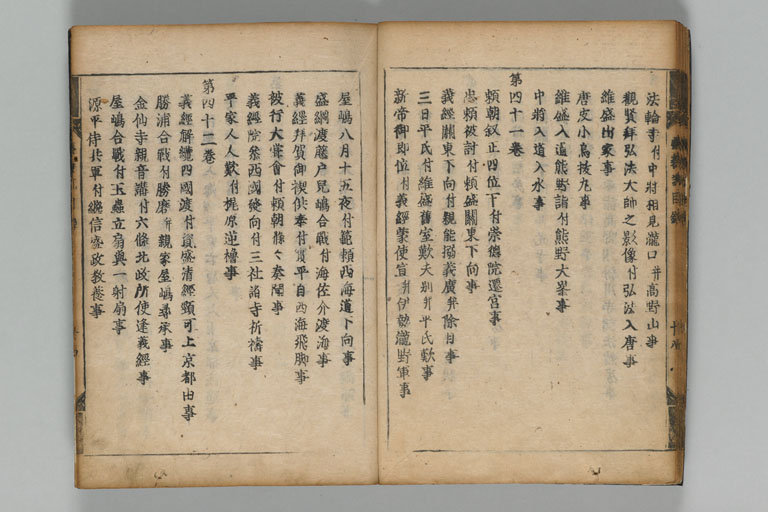 法輪寺付中将相見瀧口并高野山事
観賢拜弘法大師之影像付弘法入唐事
維盛出家事
唐皮小烏抜丸事
維盛入道熊野詣付熊野大峯事
中将入道入水事
第四十一巻
頼朝叙正四位下付崇徳院遷宮事
忠頼被討付頼盛關東下向事
義經關東下向付親能搦義廣并除目事
三日平氏付維盛舊室歎夫別并平氏歎事
新帝御即位付義經蒙使宣并伊勢瀧野軍事
屋嶋八月十五夜付範頼西海道下向事
盛綱渡藤戸児嶋合戦付海佐介渡海事
義經拜賀御禊供奉付實平自西海飛脚事
被行大嘗會付頼朝條々奏聞事
義經院参西國發向付三社諸寺祈禱事
平家人人歎付梶原逆櫓事
第四十二巻
義經解纜四國渡付資盛清經頸可上京都由事
勝浦合戦付勝磨并親家屋嶋尋承事
金仙寺観音講付六條北政所使逢義經事
屋嶋合戦付玉蟲立扇與一射扇事
源平侍共軍付継信盛政教養事